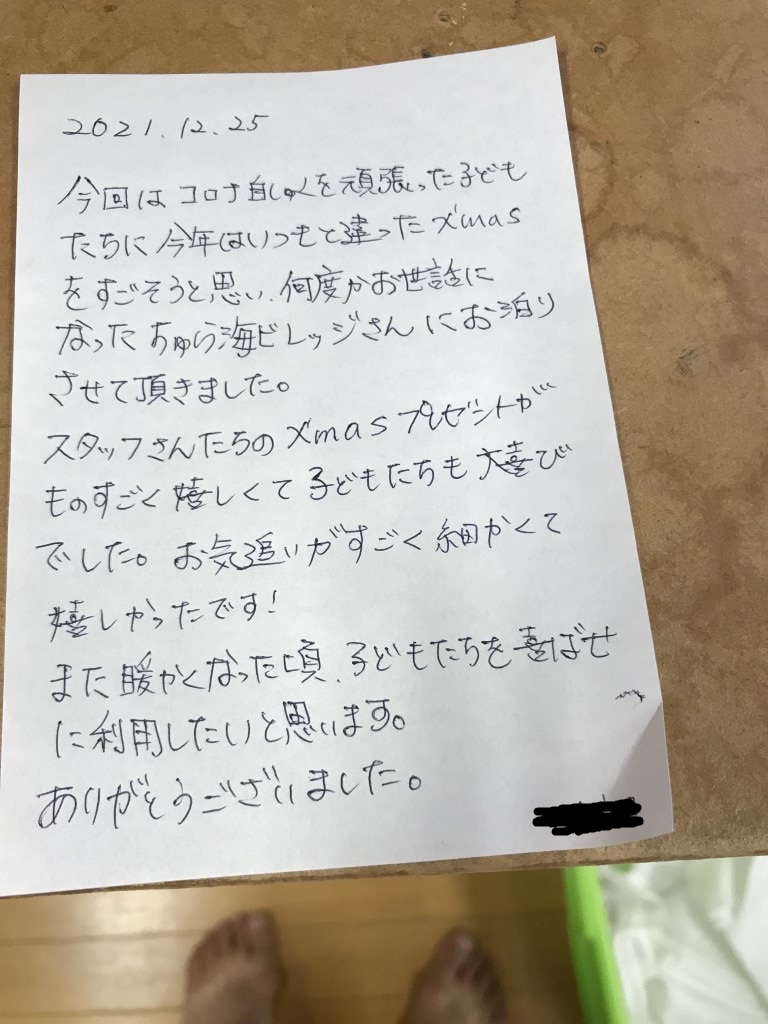 2021.12.25
今回はコロナ自しゅくを頑張った子ども
たちに今年はいつもと違ったX'mas
をすごそうと思い、何度かお世話に
なったちゅら海ビレッジさんにお泊り
させて頂きました。
スタッフさんたちのX'masプレゼントが
ものすごく嬉しくて子どもたちも大喜び
でした。お気遣いがすごく細かくて
嬉しかったです!
また暖かくなった頃、子どもたちを喜ばせ
に利用したいと思います。
ありがとうございました。